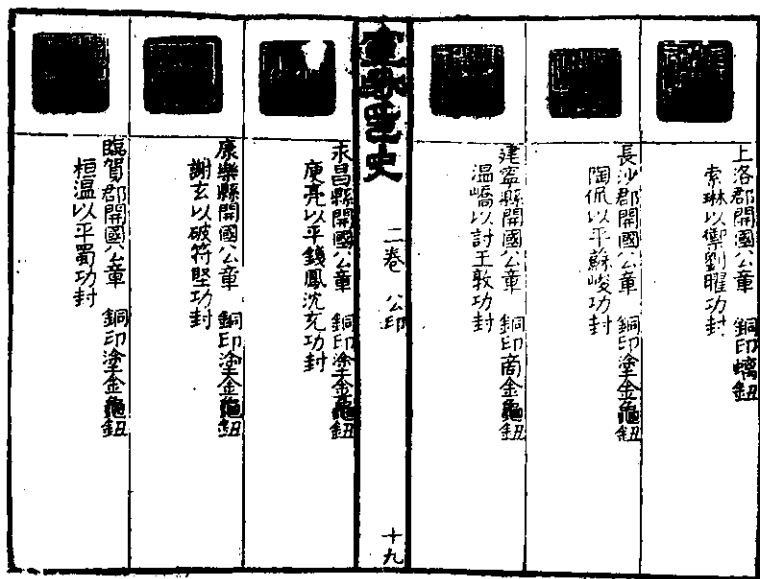 上洛郡開國公章 銅印螭鈕
索琳以禦劉曜功封
長沙郡開國公章 銅印塗金龜鈕
陶侃以平蘇峻功封
建寧縣開國公章 銅印商金龜鈕
溫嶠以討王敦功封
史 二卷 公印 十九
永昌縣開國公章 銅印塗金龜鈕
庾亮以平錢鳳沈充功封
康樂縣開國公章 銅印塗金龜鈕
謝玄以破符堅功封
臨賀郡開國公章 銅印塗金龜鈕
桓溫以平蜀功封